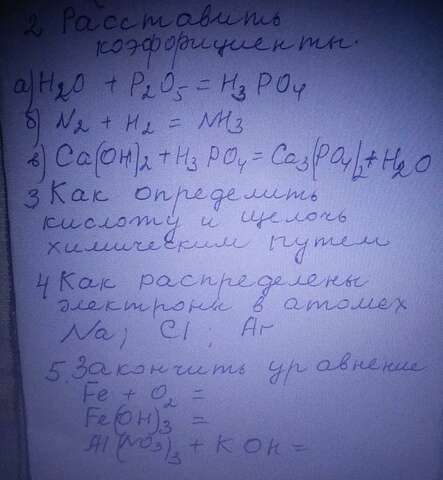 2 Расставить
коэффициенты.
а) H2O + P2O5 = H3PO4
б) N2 + H2 = NH3
в) Ca(OH)2 + H3PO4 = Ca3(PO4)2 + H2O
3. Как определить
кислоту и щелочь
химическим путем
4 Как распределены
электроны в атомех
Na; Cl; Ar
5. Закончить уравнение
Fe + O2 =
Fe(OH)3 =
Al(NO3)3 + KOH =